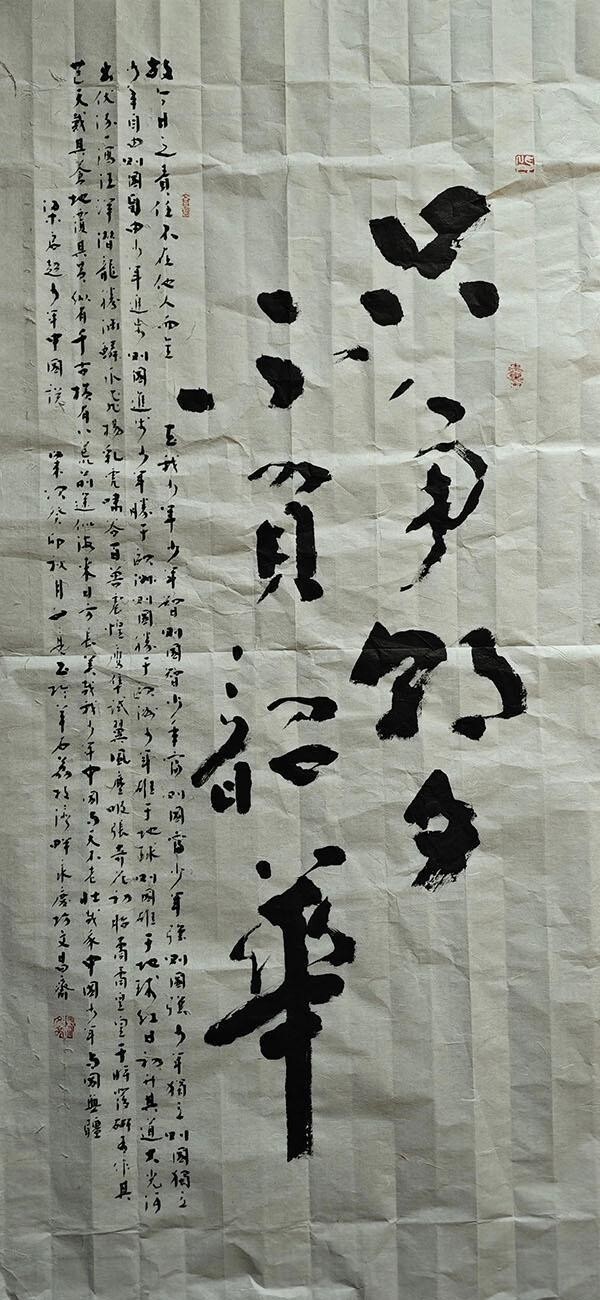 只争朝夕
不負韶華
故今日之責任不在他人而全在我少年少年智則國智少年富則國富少年強則國強少年獨立則國獨立
少年自由則國自由少年進步則國進步少年勝于歐洲則國勝于歐洲少年雄于地球則國雄于地球紅日初升其道大光河
出伏流一瀉汪洋潛龍騰淵鱗爪飛揚乳虎嘯谷百兽震惶鷹隼試翼風塵吸張奇花初胎矞矞皇皇干將發硎有作其
芒天戴其蒼地履其黄縱有千古横有八荒前途似海來日方長美哉我少年中國與天不老壯哉我中國少年與國無疆
梁啓超少年中國說 歲次癸卯秋月 永慶坊文昌齋